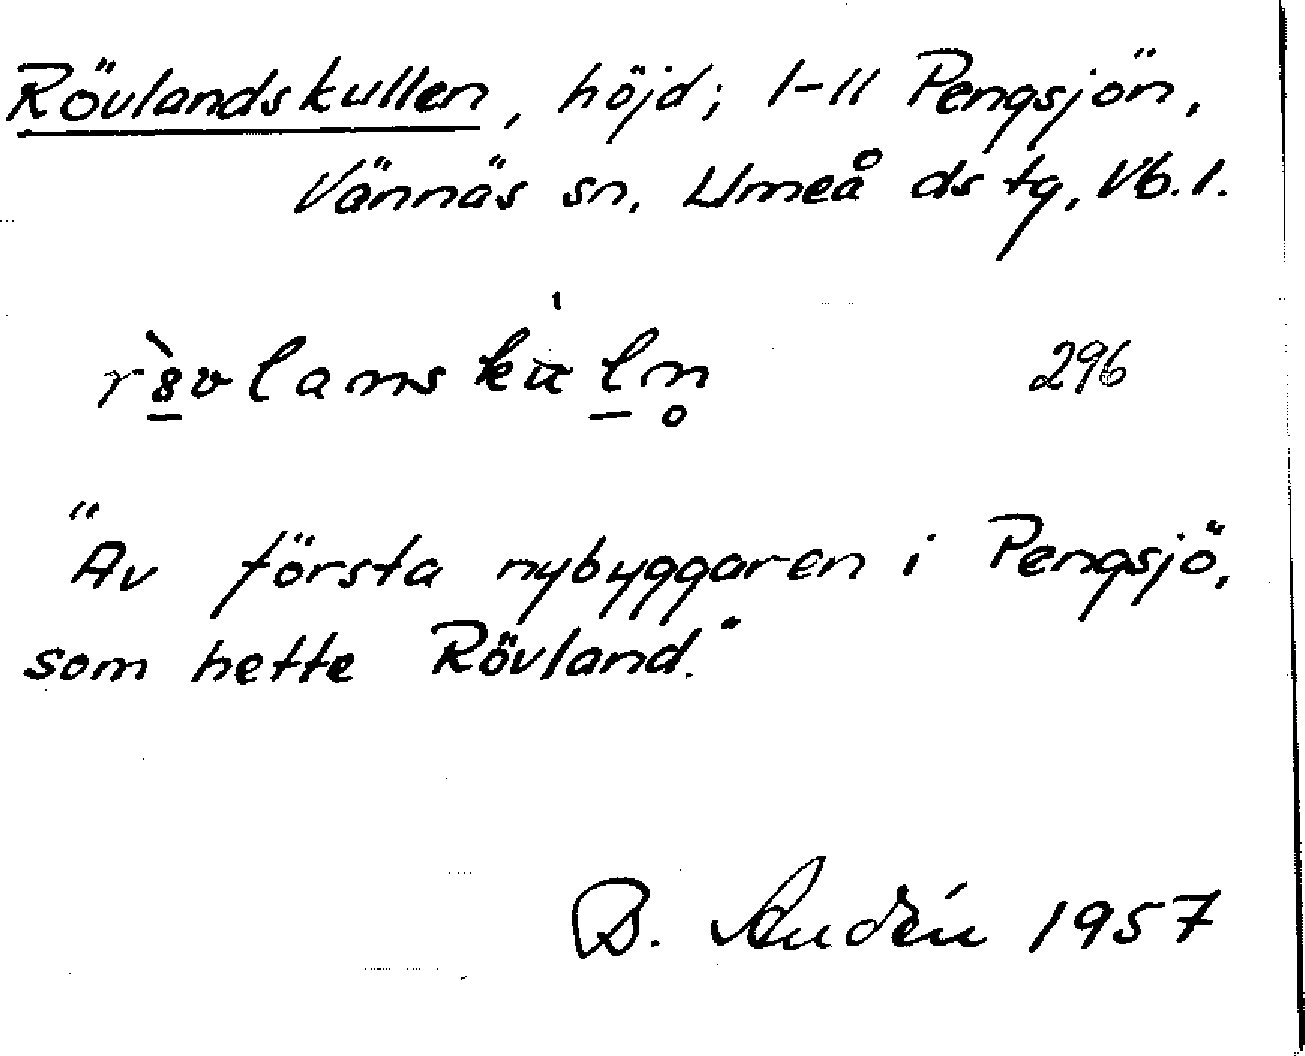 Rövlandskullen, höjd; 1-11 Pengsjön,
Vännäs sn, Umeå ds tg, Vb. l.
296
"Av första nybyggaren i Pengsjö,
som hette Rövland."
B. Audén 1957